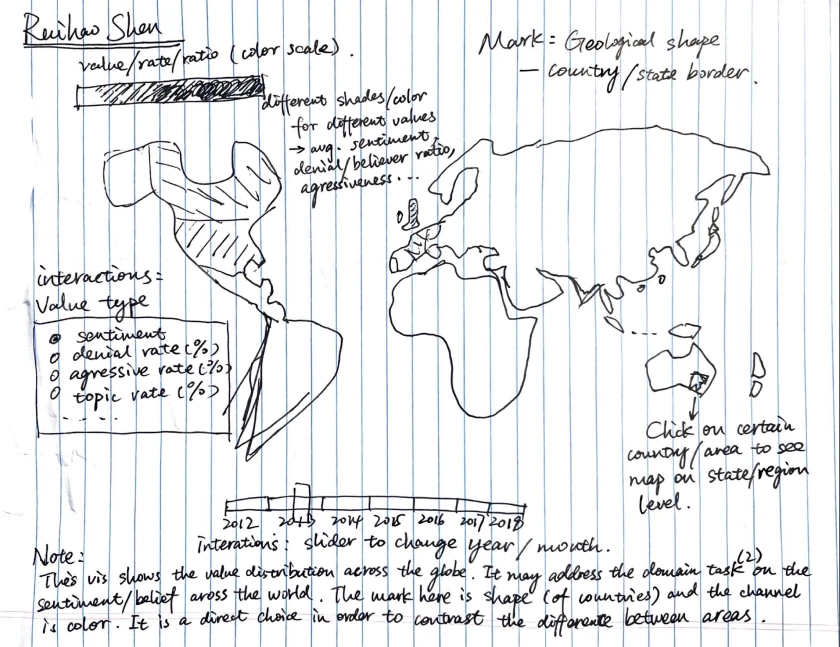 Ruihao Shen
value/rate/ratio (color scale).
different shades/color
for different values
→ avg. sentiment,
denial/believer ratio,
agressiveness...
Mark: Geological shape
— country/state border.
interactions:
Value type
sentiment
denial rate (%)
agressive rate (%)
topic rate (%)
.....
Click on certain
country/area to see
map on state/region
level.
2012 2013 2014 2015 2016 2017 2018
interations: slider to change year/month.
Note:
This vis shows the value distribution across the globe. It may address the domain task (2) on the
sentiment/belief aross the world. The mark here is shape (of countries) and the channel
is color. It is a direct choice in order to contrast the difference between areas.